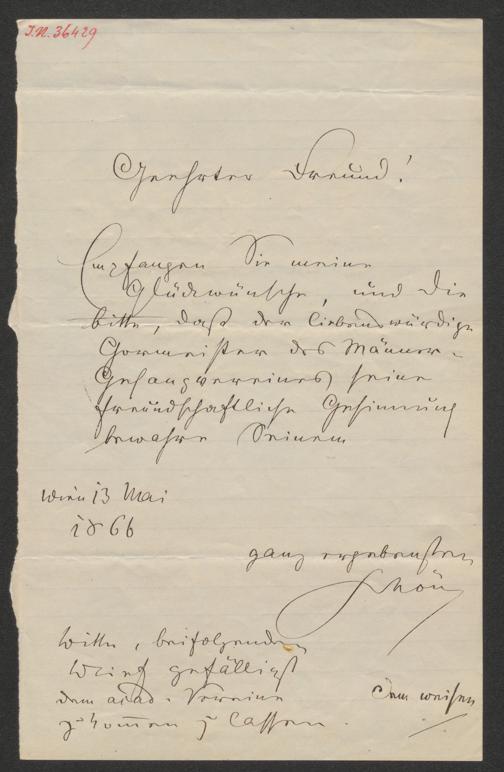 I.N. 36429
Geehrter Freund!
Empfangen Sie meine
Glückwünsche, und die
bitte, daß der liebenswürdige
Chormeister des Männer-
Gesangvereines seine
freundschaftliche Gesinnung
bewahre Seinem
Wien 13 Mai
1866
ganz ergebensten
Schön
Bitte, beifolgenden
Brief gefälligst
dem acad. Vereine
zukom̄en z lassen.